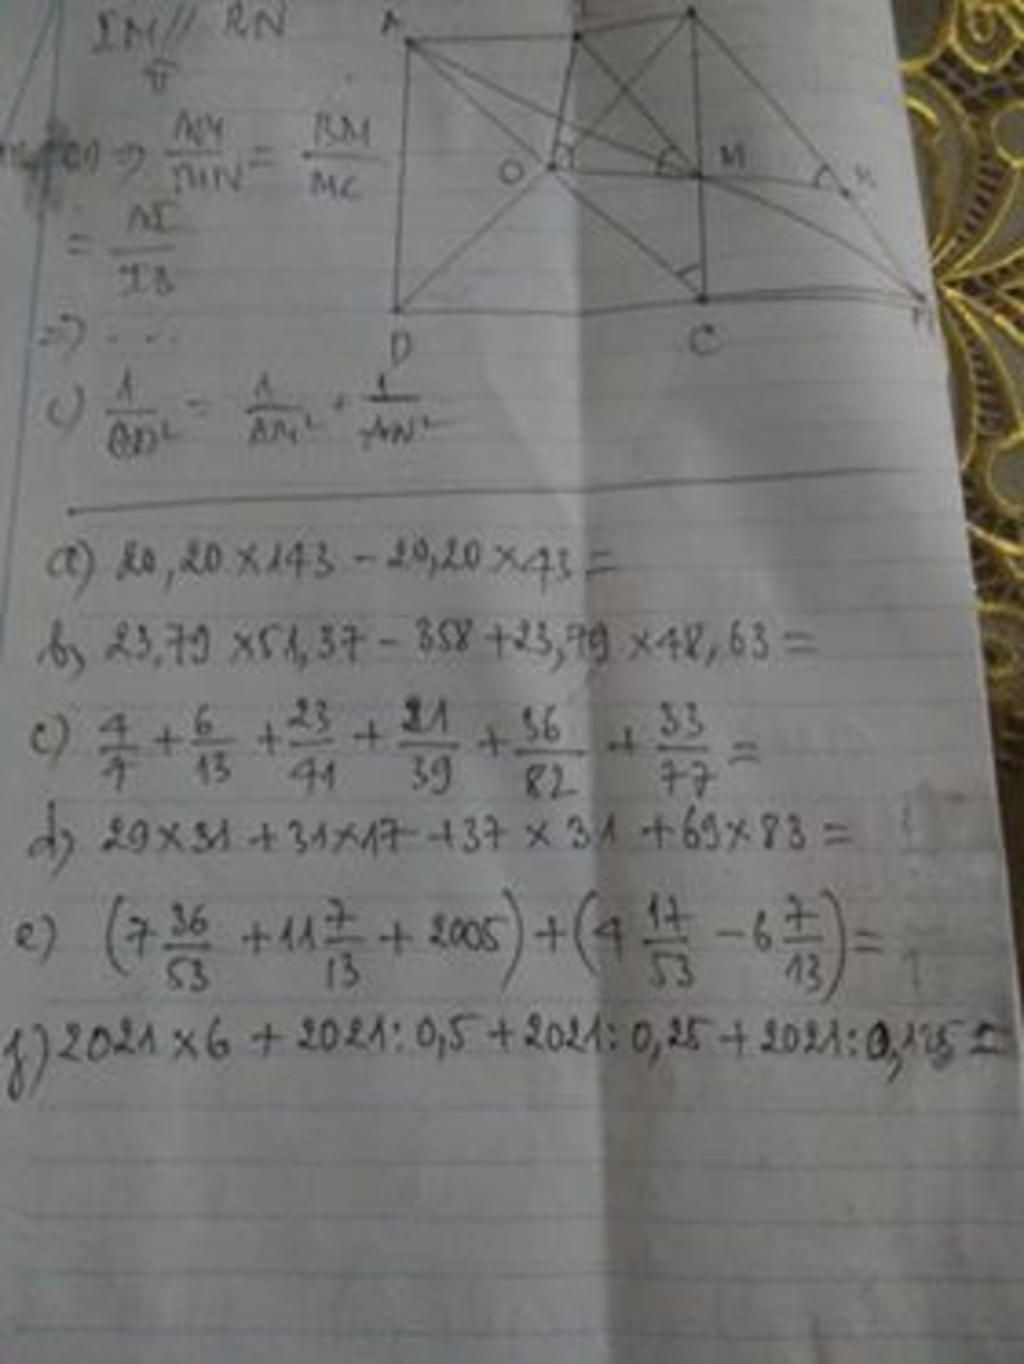 IM // BN
A
⇒ AM/MN = BM/MC
O
M
= AI/IB
H
⇒ ...
D
C
c) 1/CD² = 1/AM² + 1/AN²
a) 20,20 × 143 - 20,20 × 43 =
b, 23,79 × 51,37 - 358 + 23,79 × 48,63 =
c) 4/7 + 6/13 + 23/41 + 21/39 + 36/82 + 33/77 =
d, 29 × 31 + 31 × 17 + 37 × 31 + 69 × 83 =
e) (7 36/53 + 11 7/13 + 2005) + (4 17/53 - 6 7/13) =
f) 2021 × 6 + 2021 : 0,5 + 2021 : 0,25 + 2021 : 0,125 =